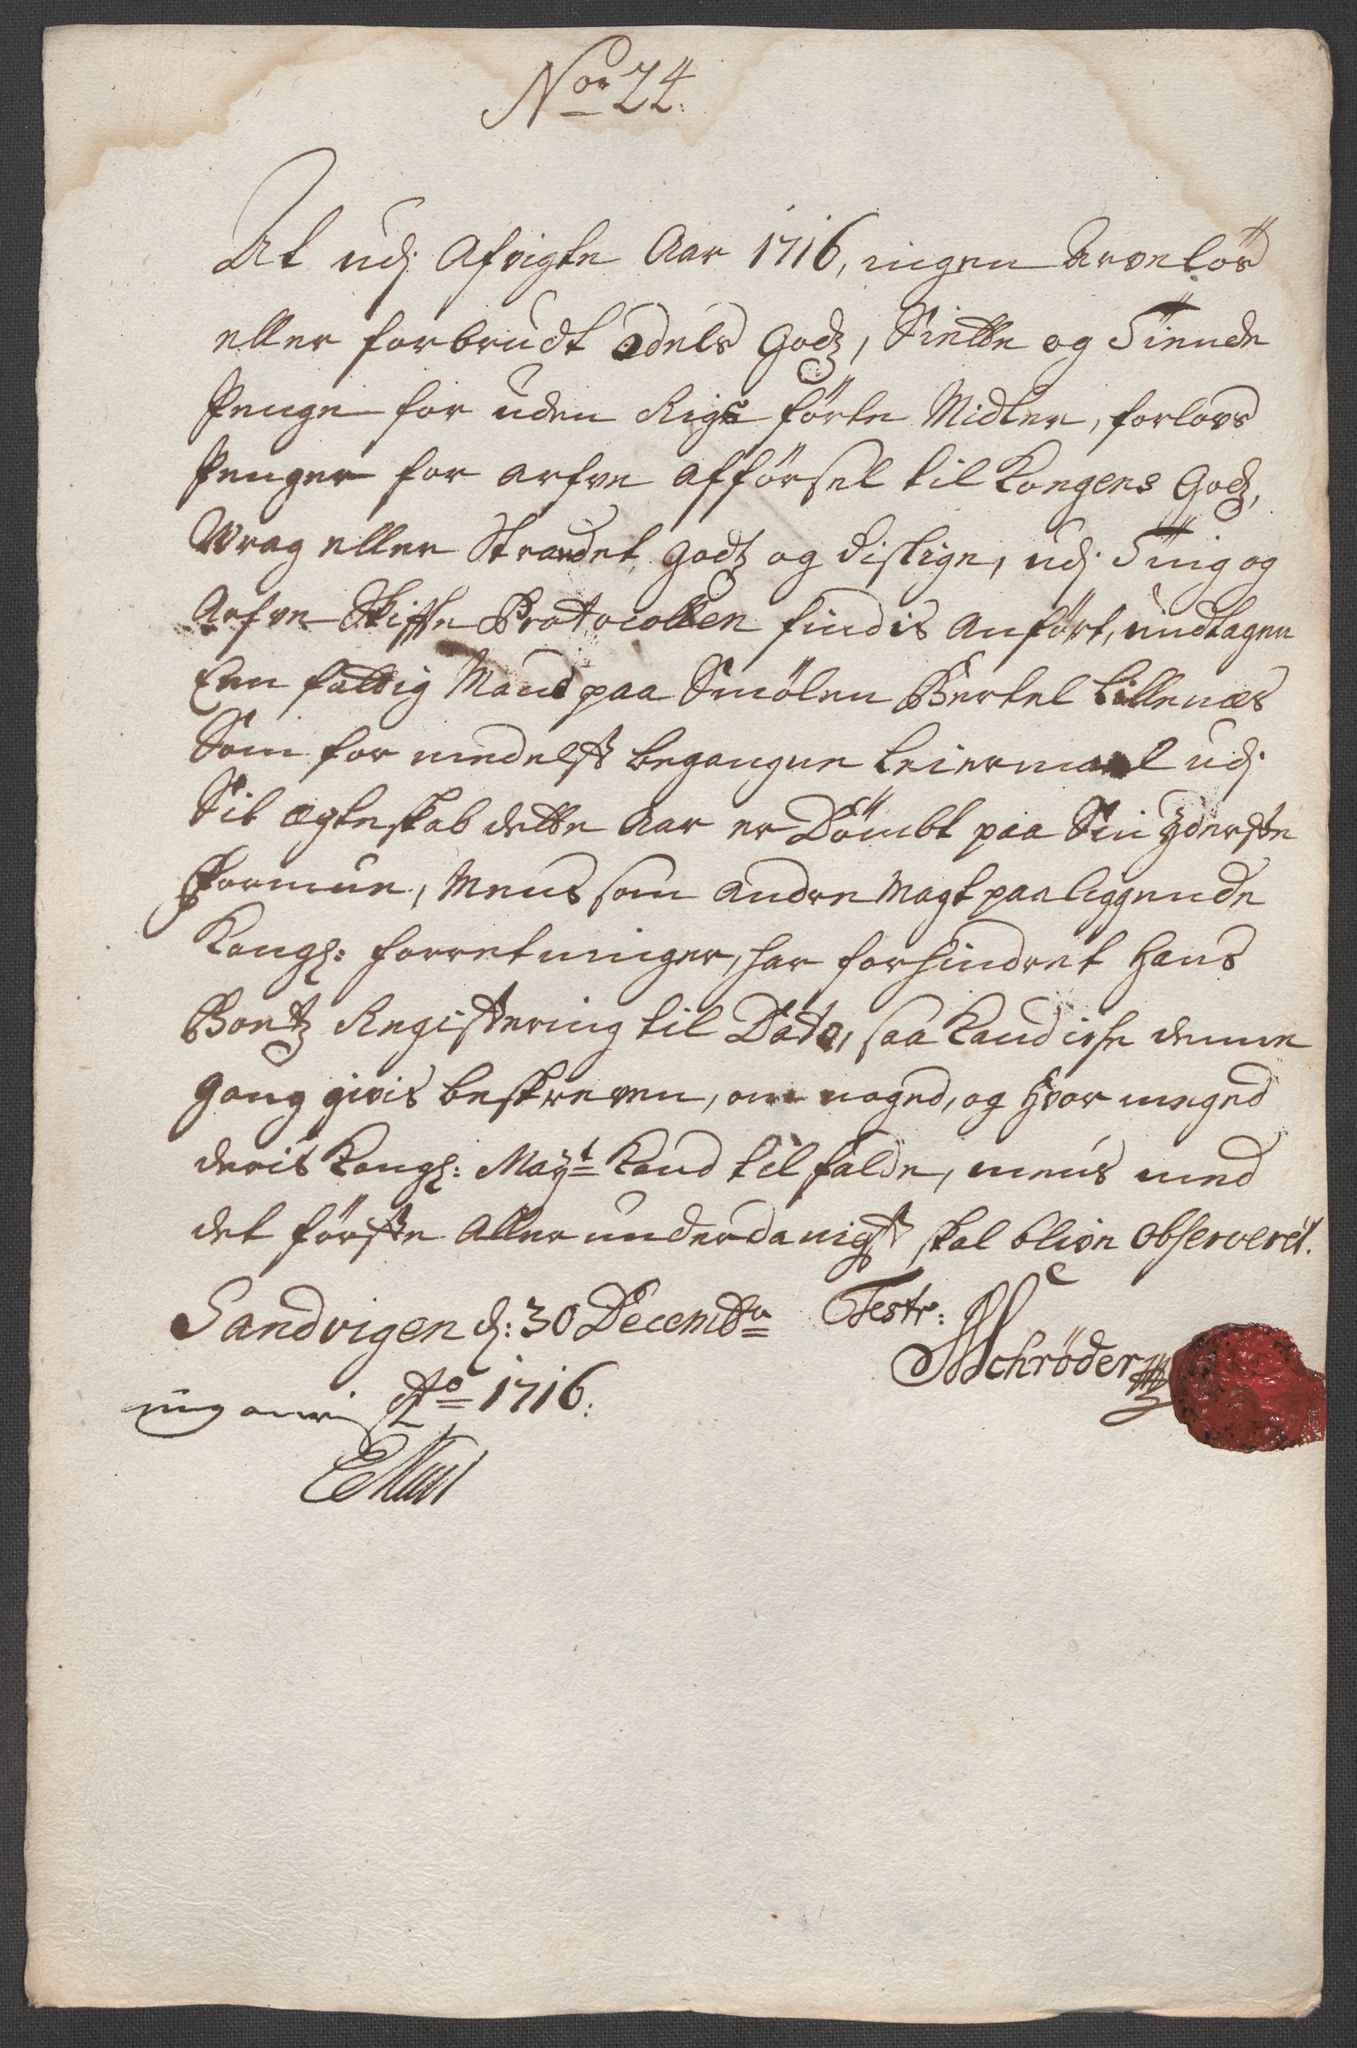 Nor 24.
At udj Afvigte Aar 1716, ingen Arveløs
eller forbrudt Odels Godz, Siette og Tiende
Penge for uden Rigs förte Midler, forlovs
Penger for arfve Afförsel til Kongens Godz,
Wrag eller Strandet Godz og dislige, udj Ting og
Arfve Skiffte Protocollen findis Anfört, undtagen
Een fattig Mand paa Smölen Bertel Lillenæs
Som formedelst begangne Leiermaal udj
Sit ægteskab dette Aar er Dömbt paa Sin Yderste
Formue, Mens som andre Magtpaaliggende
Kongl: forretninger, har forhindret Hans
Boetz Registering til Dato, saa Kand icke denne
Gang givis beskreven, om noged, og Hvor meged
deris Kongl: Mayt Kand tilfalde, mens med
det förste Allerunderdanigst skal blive Observerét.
Sandvigen d: 30 Decembr Testr:
Schrøder
Ao 1716.